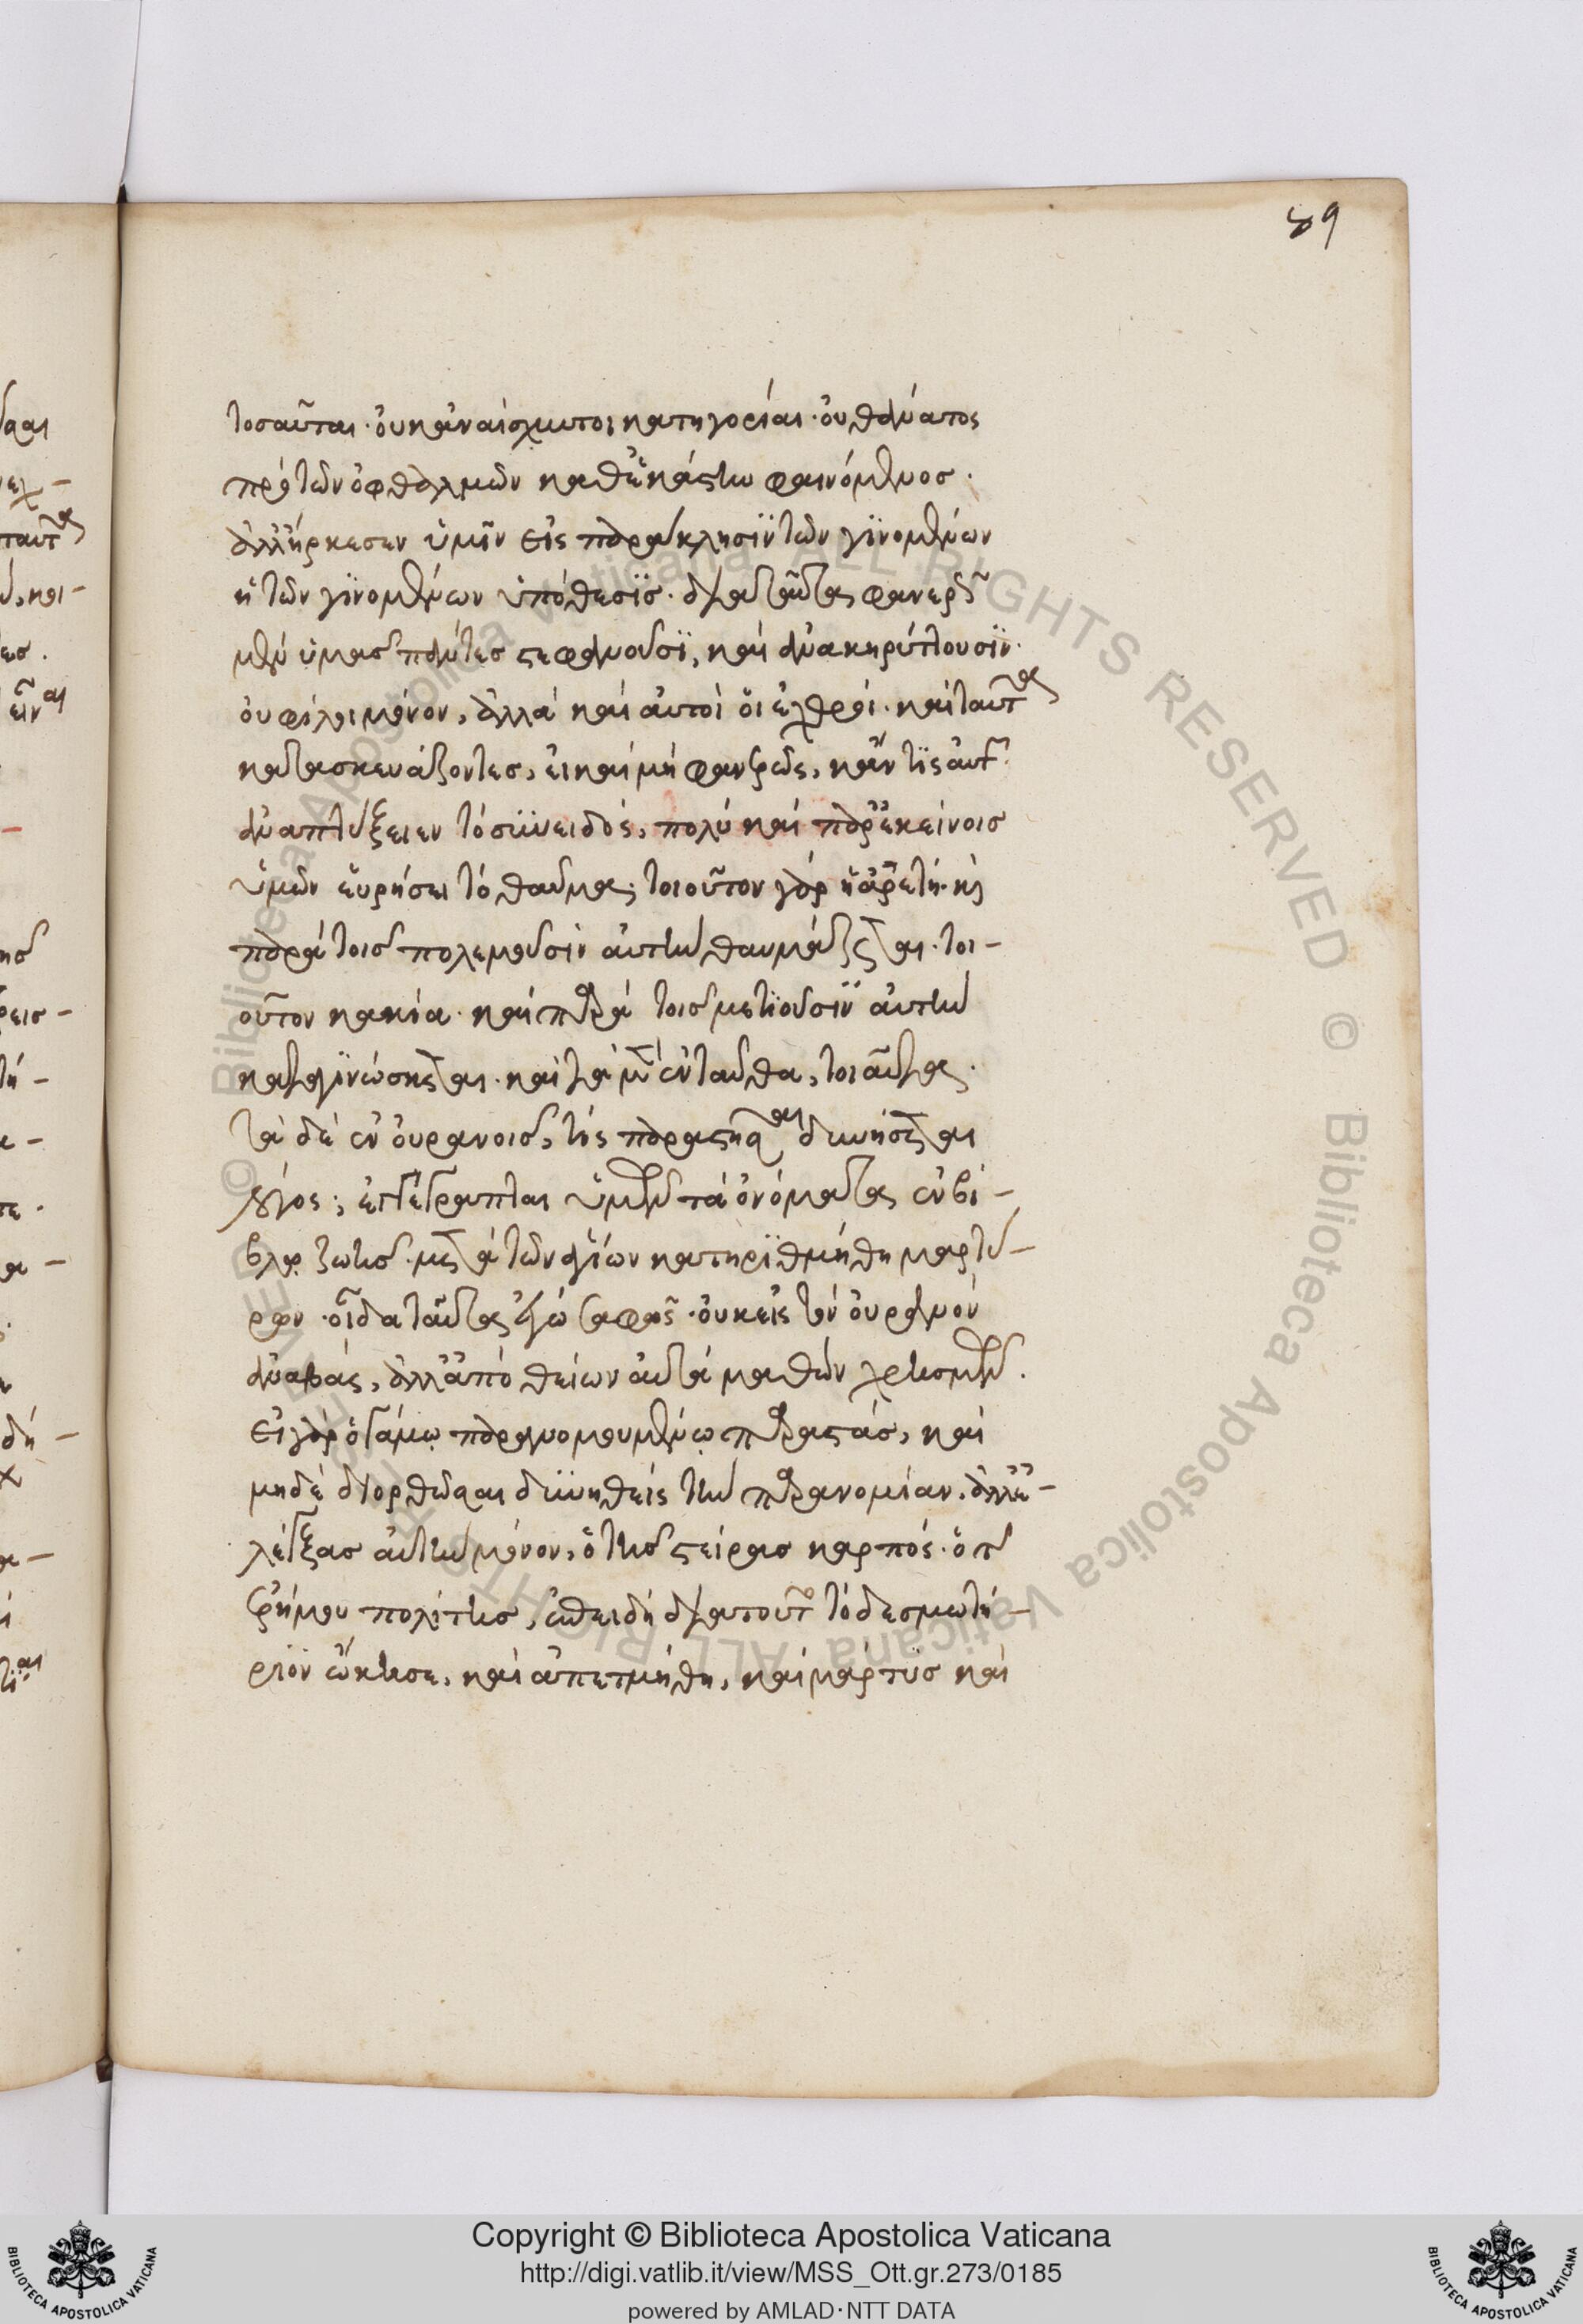 89
τοσαῦται· οὐκ ἀναίσχυντοι κατηγορίαι· οὐ θάνατος
πρὸ τῶν ὀφθαλμῶν καθ᾽ ἑκάστην φαινόμενος·
ἀλλ᾽ ἤρκεσεν ὑμῖν εἰς παράκλησιν τῶν γινομένων
ἡ τῶν γινομένων ὑπόθεσις· διὰ ταῦτα φανερῶς
μὲν ὑμᾶς πάντες στεφανοῦσι, καὶ ἀνακηρύττουσιν·
οὐ φίλοι μόνον, ἀλλὰ καὶ αὐτοὶ οἱ ἐχθροὶ· καὶ ταῦτα
κατασκευάζοντες, εἰ καὶ μὴ φανερῶς, κἄν τις αὐτῶν
ἀναπτύξειεν τὸ συνειδός, πολὺ καὶ παρ᾽ ἐκείνοις
ὑμῶν εὑρήσει τὸ θαῦμα· τοιοῦτον γὰρ ἡ ἀρετὴ· καὶ
παρὰ τοῖς πολεμοῦσιν αὐτὴν θαυμάζεται· τοι-
οῦτον κακία· καὶ παρὰ τοῖς μετιοῦσιν αὐτὴν
καταγινώσκεται· καὶ τὰ μὲν ἐνταῦθα, τοιαῦτα·
τὰ δὲ ἐν οὐρανοῖς, τίς παραστῆσαι δυνήσεται
λόγος; ἐγγέγραπται ὑμῶν τὰ ὀνόματα ἐν βί-
βλῳ ζωῆς· μετὰ τῶν ἁγίων κατηριθμήθη μαρτύ-
ρων· οἶδα ταῦτα ἐγὼ σαφῶς· οὐκ εἰς τὸν οὐρανὸν
ἀναβάς, ἀλλ᾽ ἀπὸ θείων αὐτὰ μαθὼν χρησμῶν·
εἰ γὰρ ὁ γάμῳ παρανομουμένῳ παραστὰς, καὶ
μηδὲ διορθῶσαι δυνηθεὶς τὴν παρανομίαν, ἀλλ᾽ ἐ-
λέγξας αὐτὴν μόνον, ὁ τῆς στείρας καρπός· ὁ τῆς
ἐρήμου πολίτης, ἐπειδὴ διὰ τοῦτο τὸ δεσμωτή-
ριον ᾤκησε, καὶ ἀπετμήθη, καὶ μάρτυς καὶ
Copyright © Biblioteca Apostolica Vaticana
http://digi.vatlib.it/view/MSS_Ott.gr.273/0185
powered by AMLAD·NTT DATA